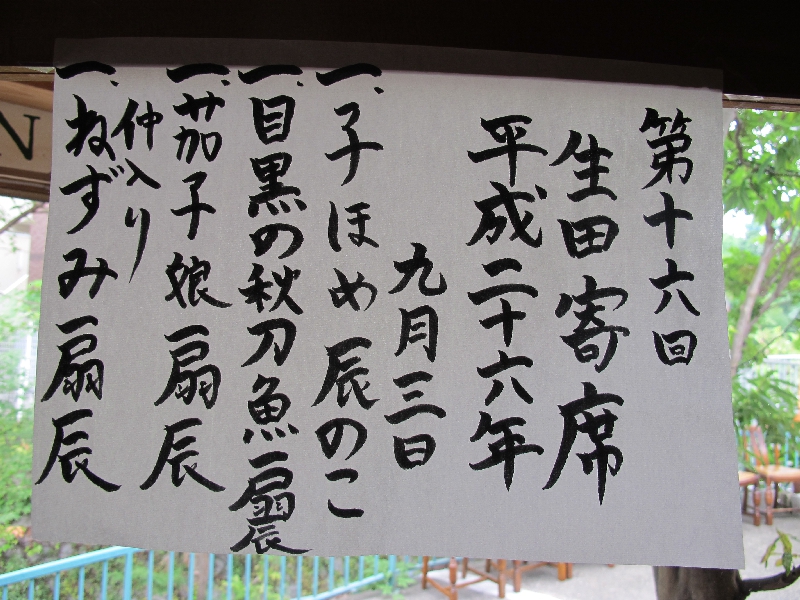 第十六回
生田寄席
平成二十六年
九月三日
一、子ほめ 辰のこ
一、目黒の秋刀魚 扇辰
一、茄子娘 扇辰
仲入り
一、ねずみ 扇辰
N